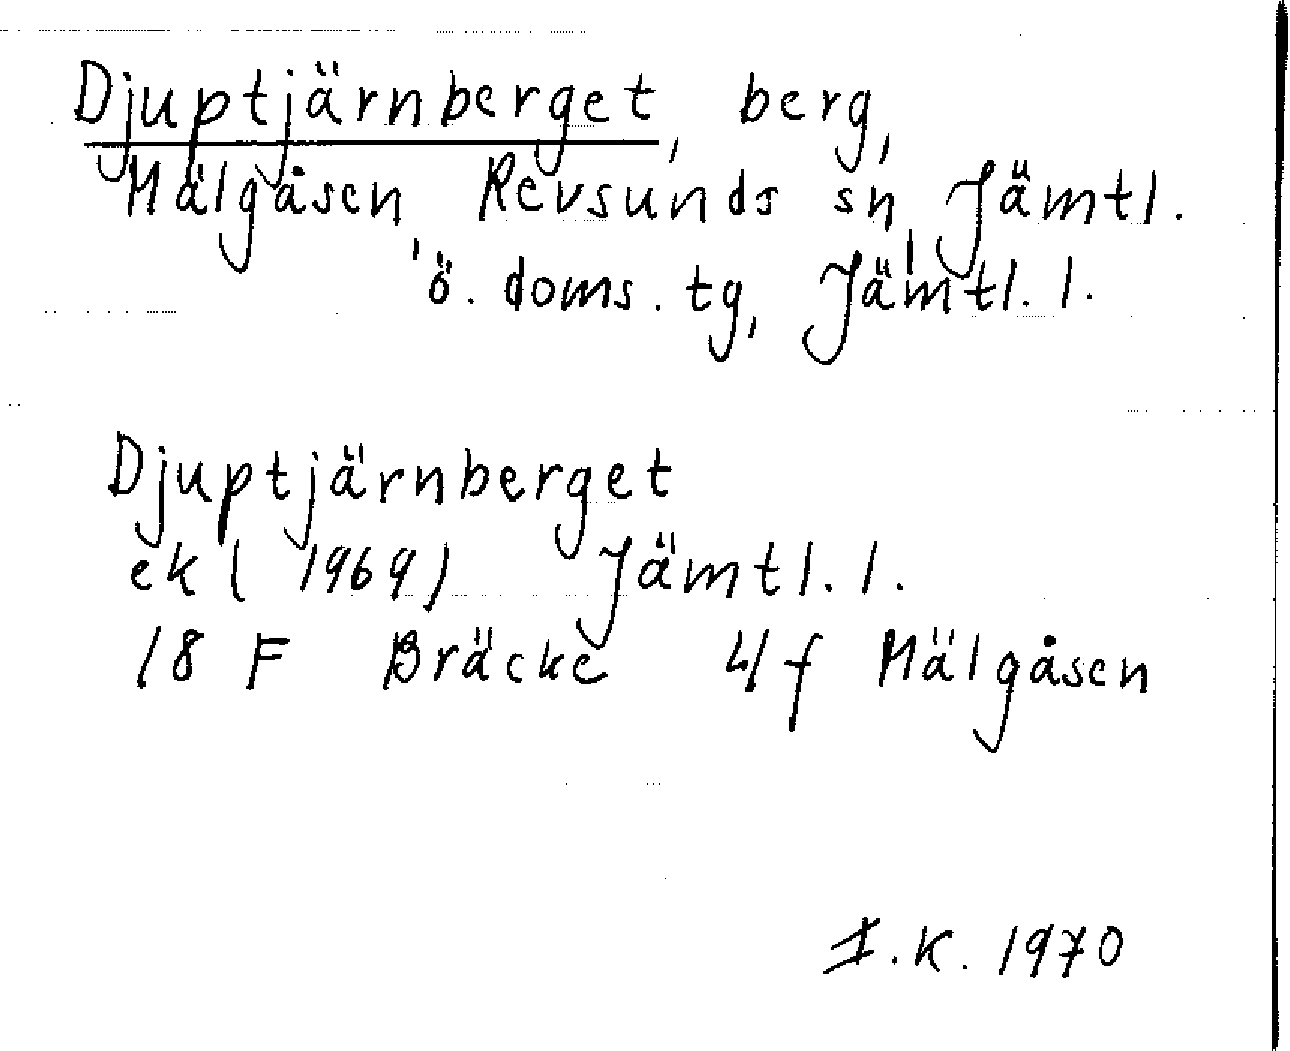 Djuptjärnberget, berg,
Mälgåsen, Revsunds sn, Jämtl.
ö. doms. tg, Jämtl. l.
Djuptjärnberget
ek (1969) Jämtl. l.
18 F Bräcke 4f Mälgåsen
I.K. 1970